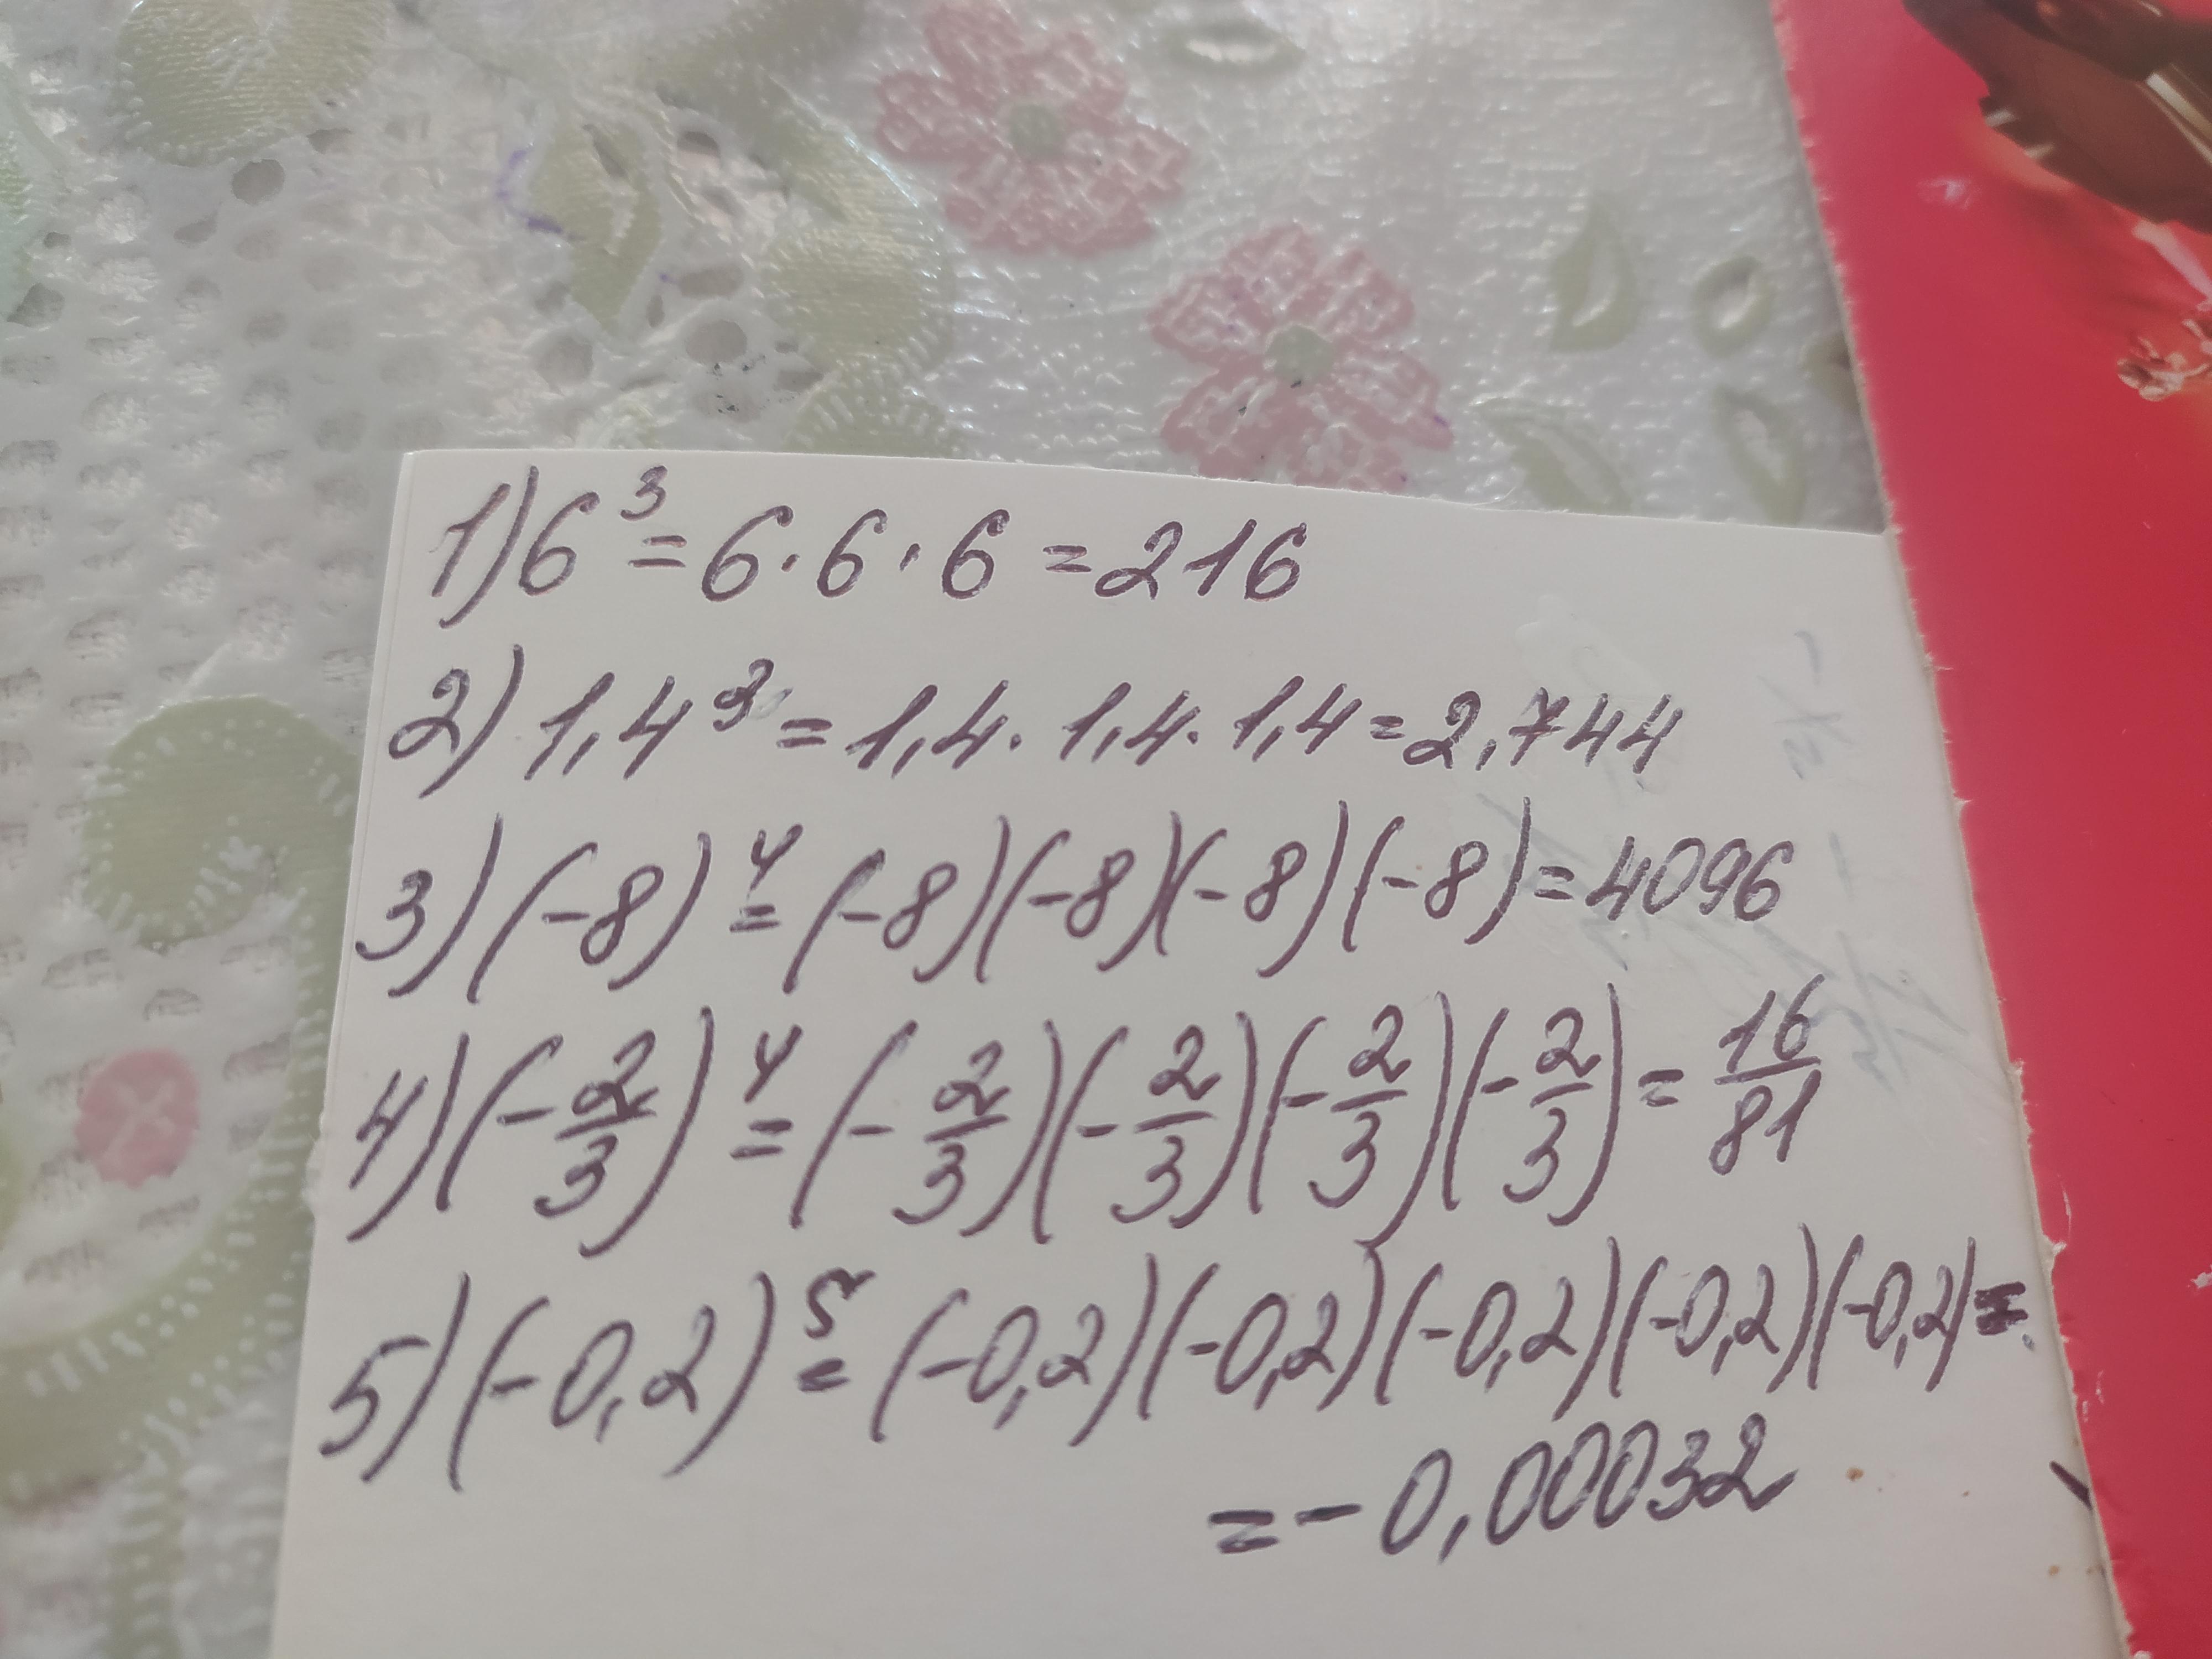 1) 6³ = 6 · 6 · 6 = 216
2) 1,4³ = 1,4 · 1,4 · 1,4 = 2,744
3) (-8)⁴ = (-8)(-8)(-8)(-8) = 4096
4) (-2/3)⁴ = (-2/3)(-2/3)(-2/3)(-2/3) = 16/81
5) (-0,2)⁵ = (-0,2)(-0,2)(-0,2)(-0,2)(-0,2) =
= -0,00032